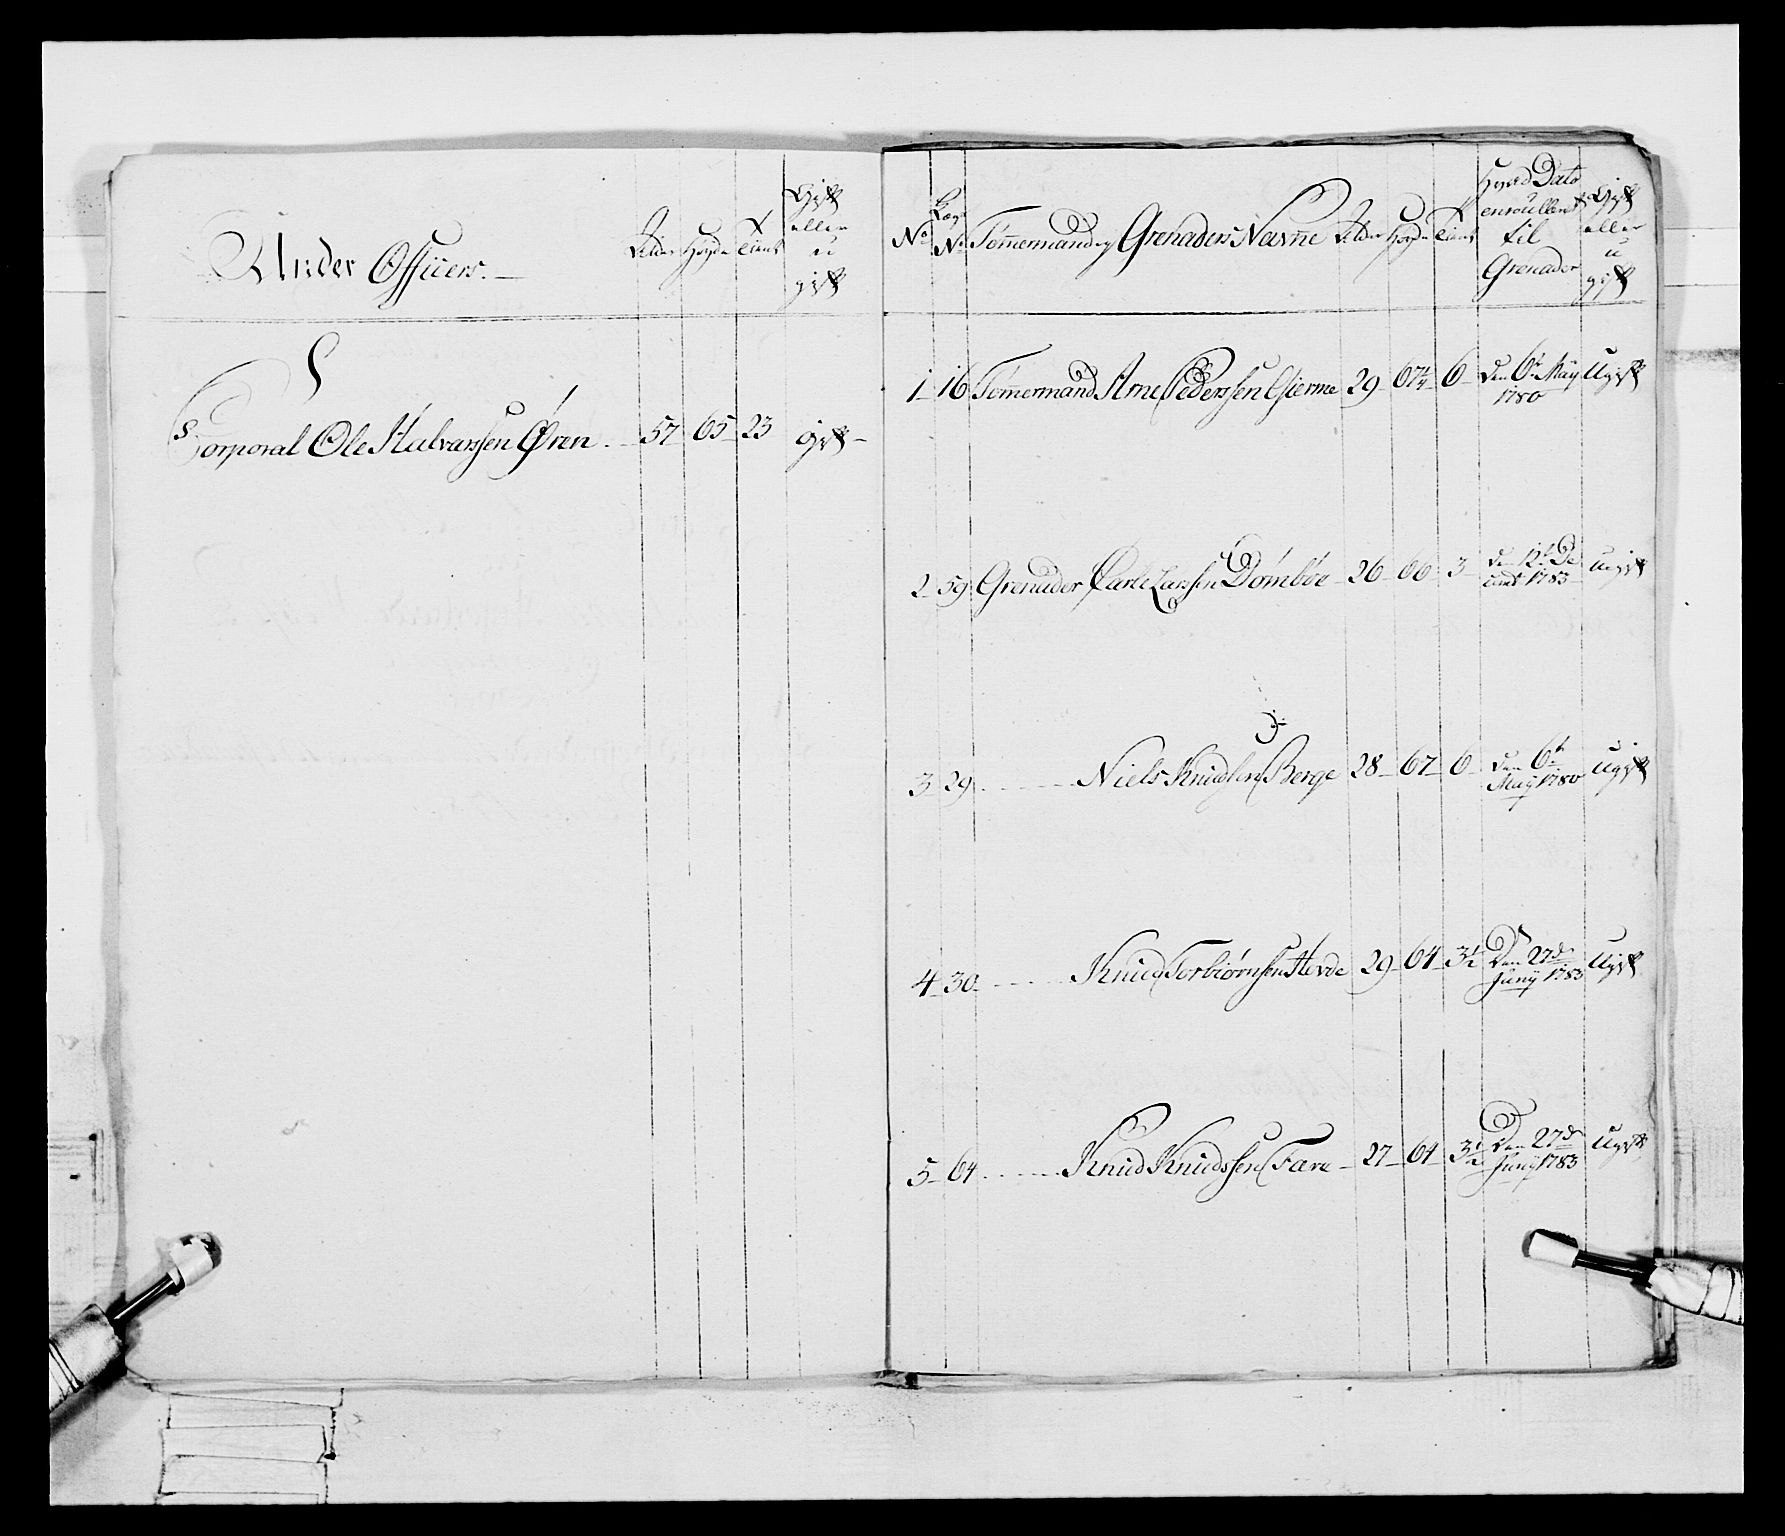 Under Officers.
Alder
Høyde
Tient
Gift
eller
u
gift
Corporal Ole Halvarssen Øren. 57 65 23 gift
No
Læg
No
Tømermand og Grenaders Navne
Alder
Høyde
Tient
Hvad Dato
enroullent
til
Grenader
Gift
eller
u
gift
1 16 Tømermand Arne Pederssen Gierme 29 67¼ 6 den 6t May Ugift
1780
2 59 Grenader Carl Larssen Dombøe 26 66 3 den 12t De
cembr 1783 ugift
3 29 Niels Knudsen Berge 28 67 6 den 6t
May 1780 Ugift
4 30 Knud Torbiørnsen Hovde 29 64 3½ Den 27de
Junÿ 1783 Ugift
5 64 Knud Knudssen Fare 27 64 3½ Den 27de
Junÿ 1783 Ugift